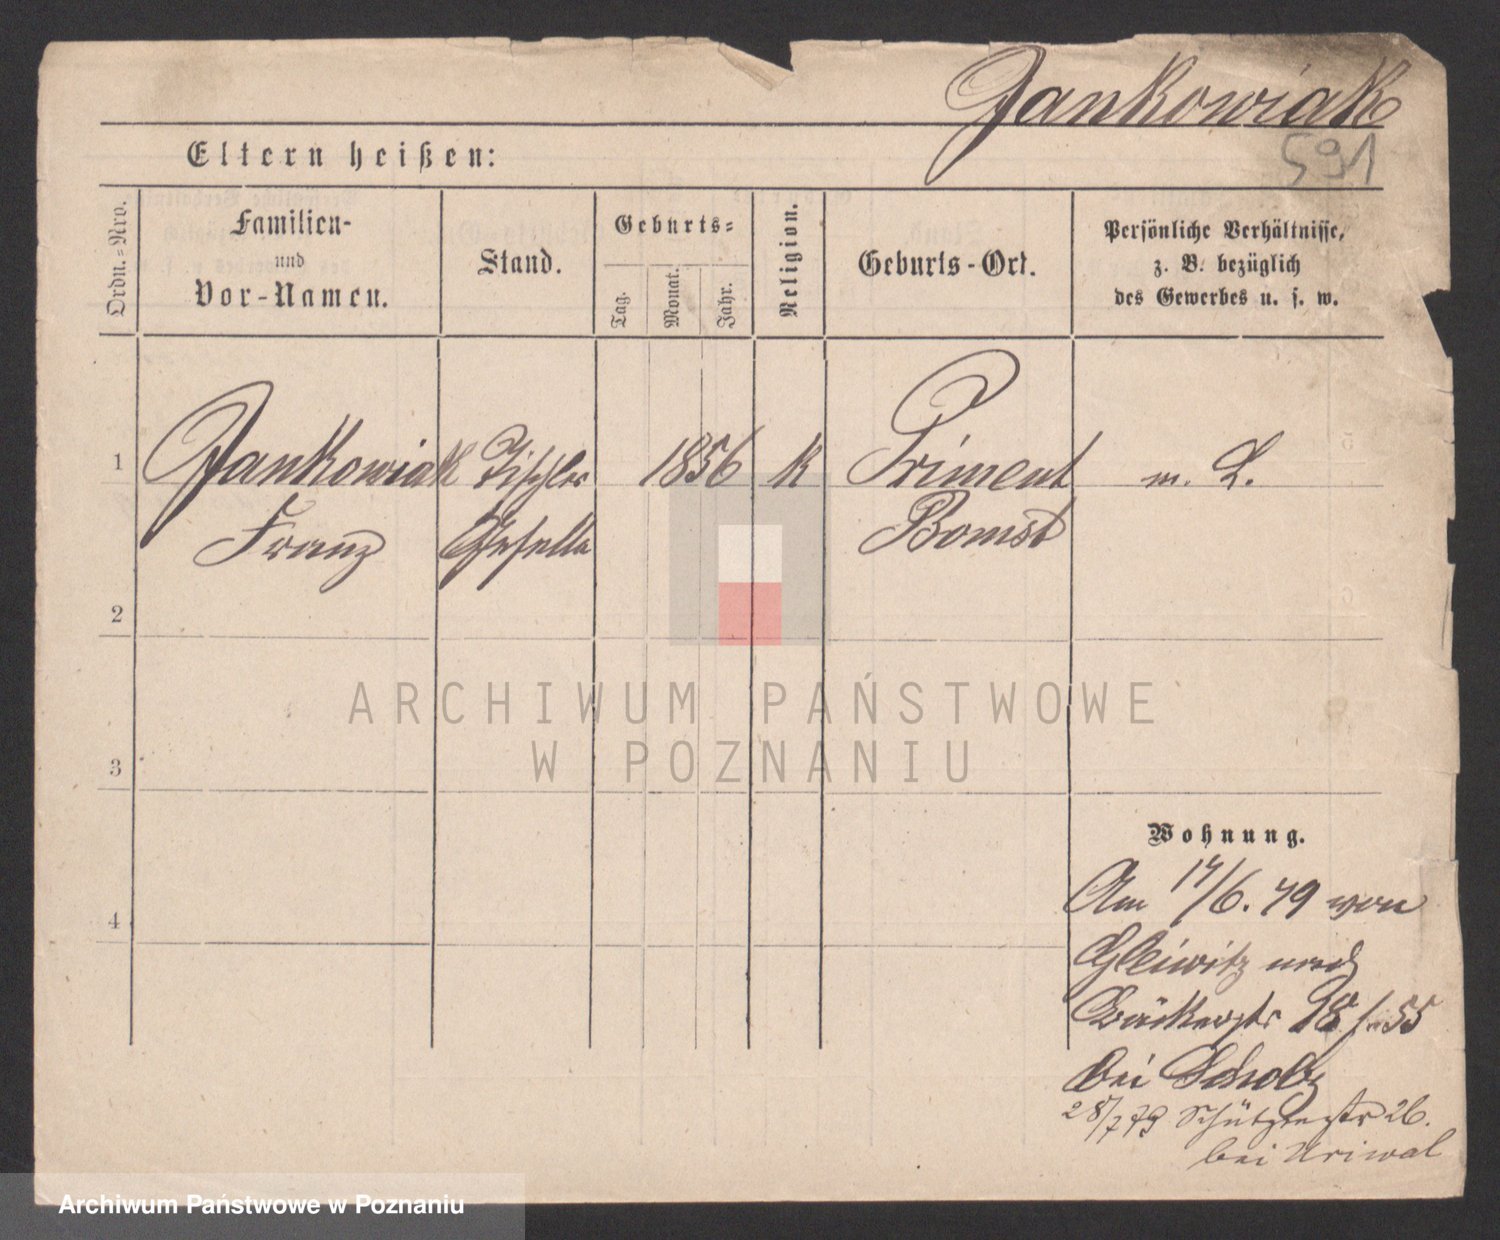 Jankowiak
591
Eltern heißen:
Ordn.-Nro.
Familien-
und
Vor-Namen.
Stand.
Geburts-
Tag.
Monat.
Jahr.
Religion.
Geburts-Ort.
Persönliche Verhältnisse,
z. B. bezüglich
des Gewerbes u. s. w.
1 Jankowiak Tischler 1856 k Priment m. L.
Franz Geselle Bomst
2
3
4
ARCHIWUM PAŃSTWOWE
W POZNANIU
Wohnung.
Am 17/6. 79 von
Gleiwitz nach
Bäckerstr 18 55
bei Scholz
28/7 79 Schützenstr 26.
bei Uriwal
Archiwum Państwowe w Poznaniu